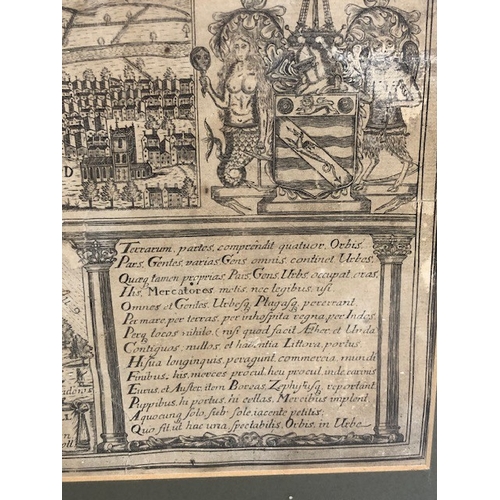 Terrarum, partes, comprendit quatuor, Orbis.
Pars, Gentes, varias Gens omnis, continet Urbes:
Quæq tamen, proprias, Pars, Gens, Urbs, occupat, oras,
His, Mercatores metis, nec legibus, usi
Omnes et Gentes, Urbesq, Plagasq, pererrant
Per mare, per terras, per inhospita regna, per Indos
Perq locos nihilo, (nisi quod facit Æther, et Unda
Contiquos, nullos, et hac Littora, portus
Hi sua longinquis, peragunt commercia, mundi
Finibus, his, merces procul, heu procul, inde
Eurus, et Auster, item Boreas, Zephyrusq, reportant
Puppibus, In portus, in cellas, Mercibus implent,
Aquocunq, solo, sub sole, iacente petitis:
Quo fit, ut hac una, spectabilis, Orbis, in Urbe
D